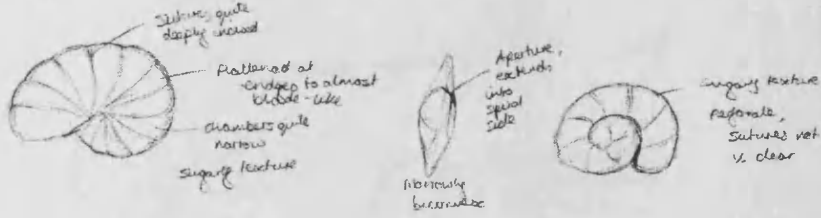 Sutures quite
deeply incised
flattened at
edges to almost
blade-like
chambers quite
narrow
sugary texture
Aperture,
extends
into
spiral
side
Narrowly
biconvex
sugary texture
perforate,
sutures not
v. clear